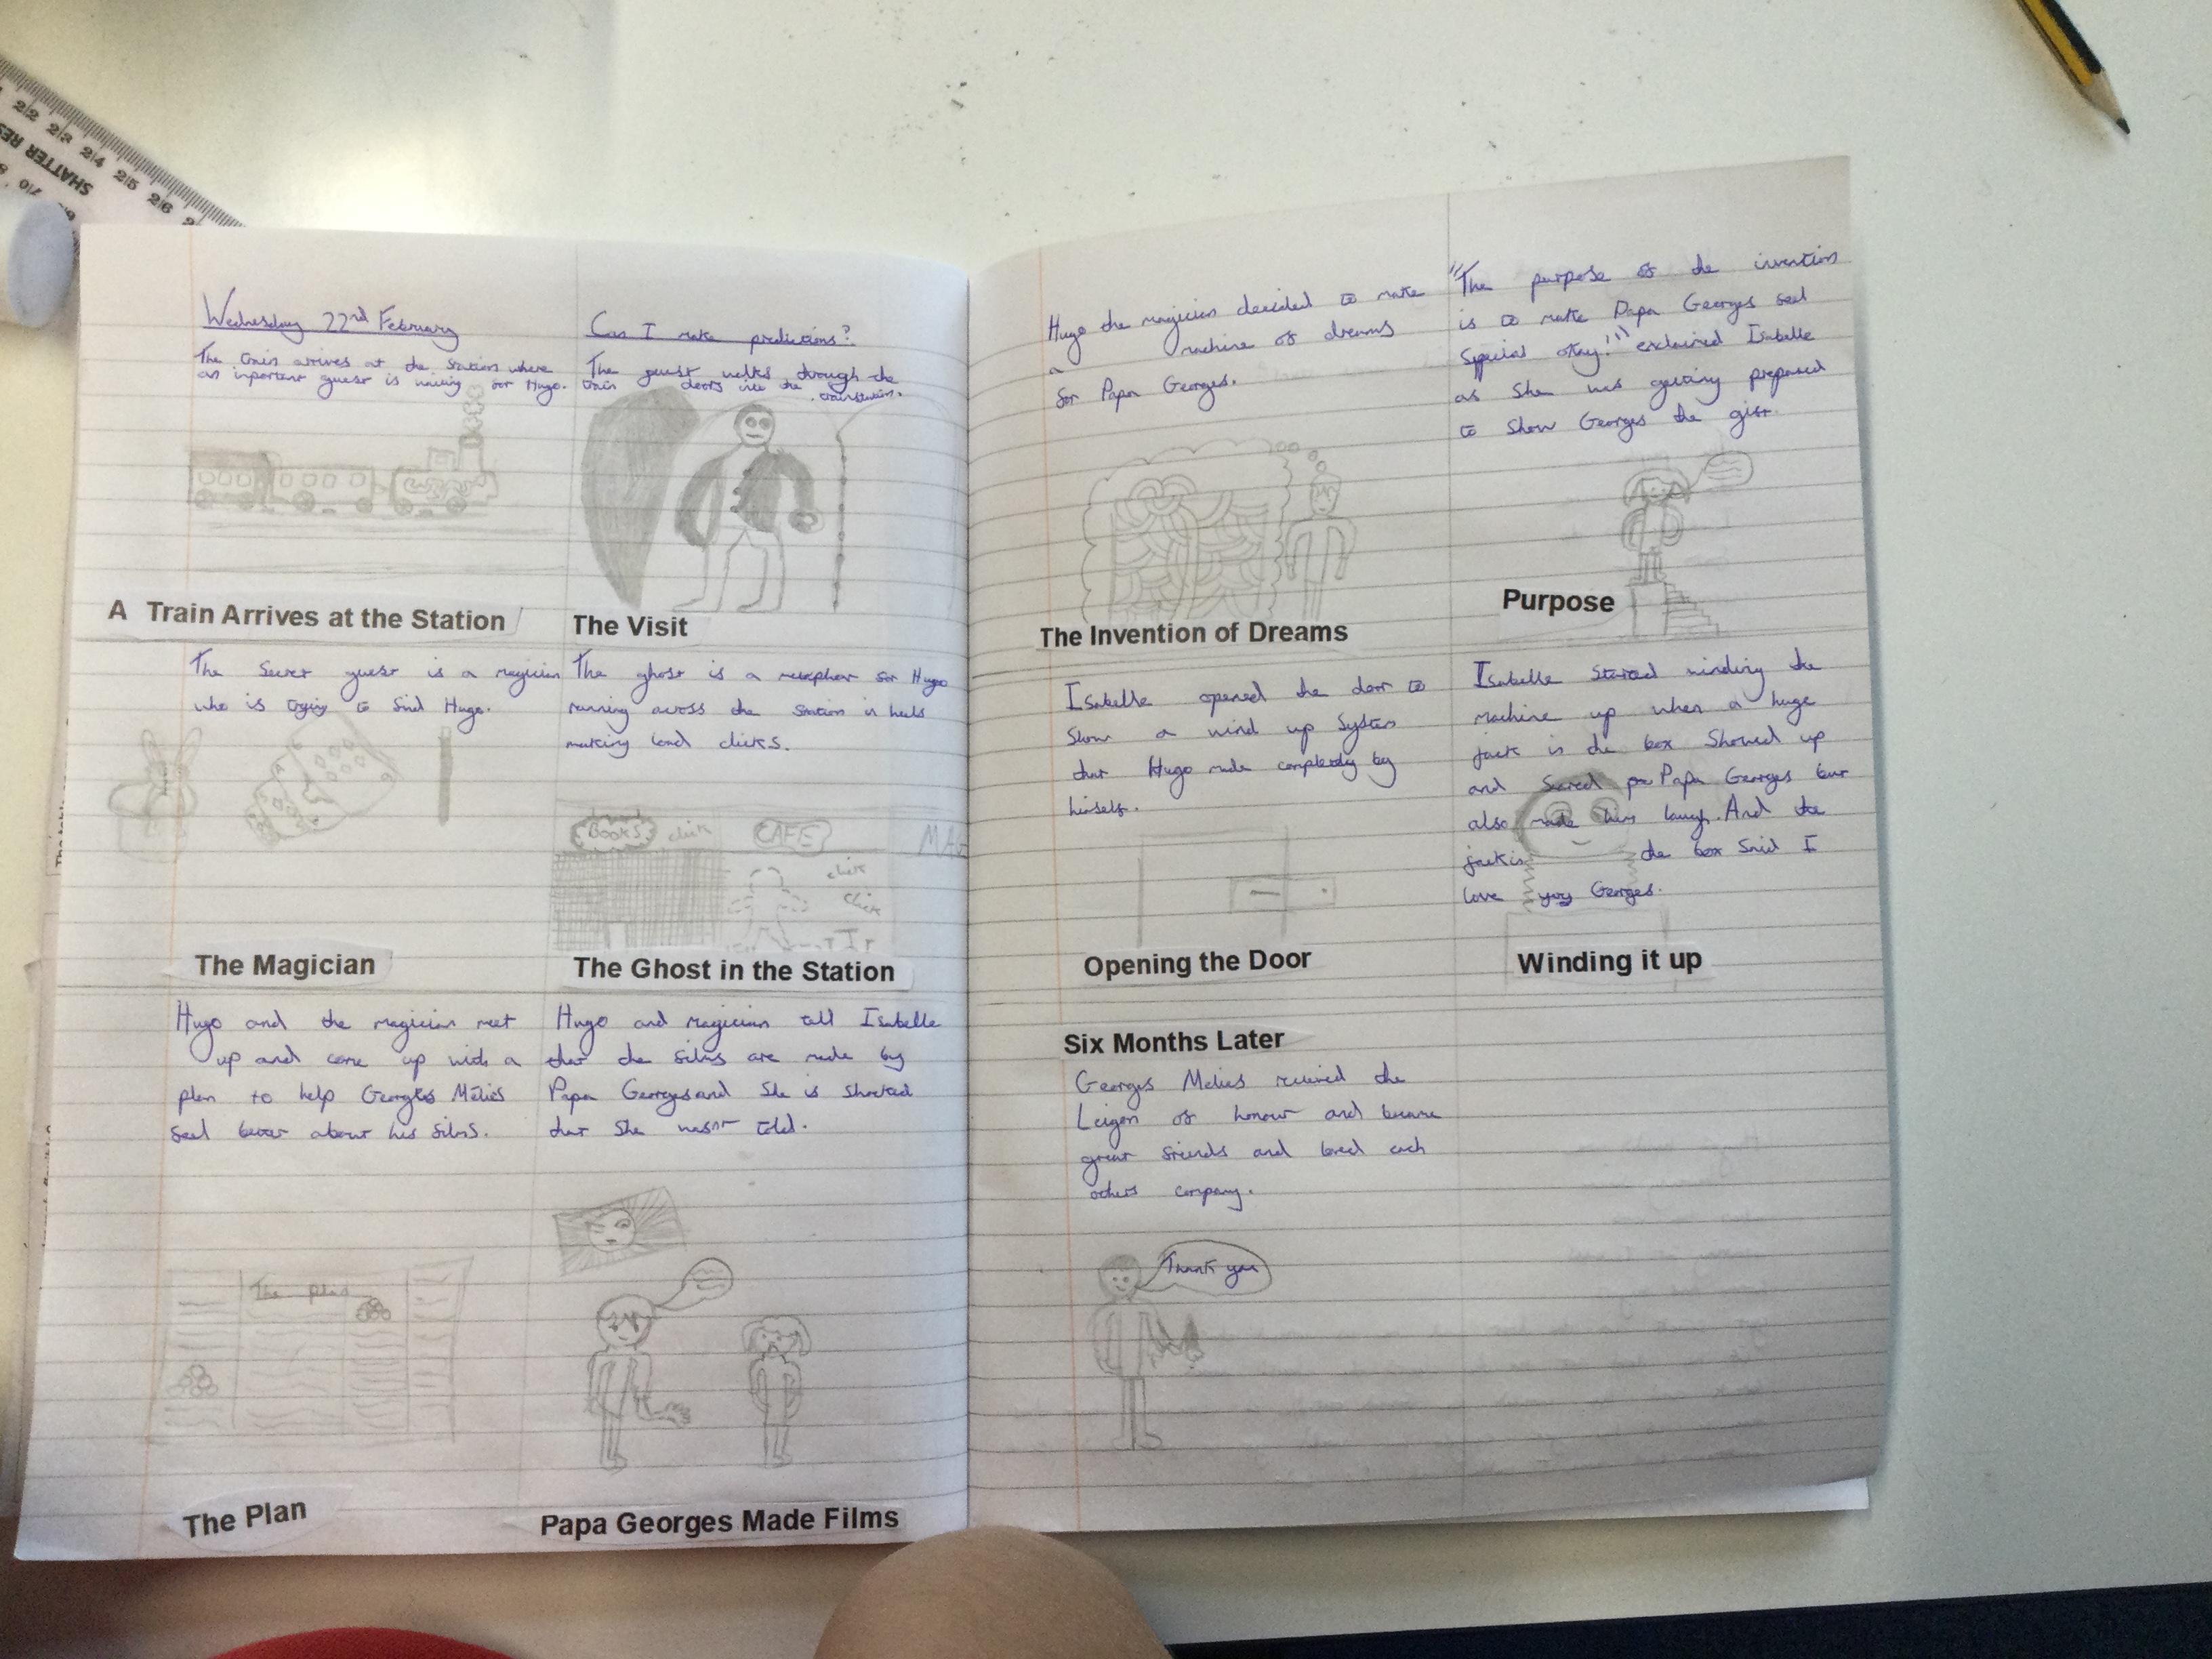 22 23 24 25 26
SHATTER RES
Wednesday 22nd February
Can I make predictions?
The train arrives at the station where
an inportant guest is waiting for Hugo.
The guest walks through the
train doors into the
trainstation.
A Train Arrives at the Station
The Visit
The Secret guest is a magician
who is trying to find Hugo.
The ghost is a metaphor for Hugo
running across the station in heels
making loud clicks.
BOOKS click CAFE MA
click
click
The Magician
The Ghost in the Station
Hugo and the magician meet
up and come up with a
plan to help Georges Méliès
feel better about his films.
Hugo and Magician tell Isabelle
that the films are made by
Papa Georges and She is shocked
that She wasnt told.
The plan
The Plan
Papa Georges Made Films
Hugo the magician decided to make
a machine of dreams
for Papa Georges.
"The purpose of the invention
is to make Papa Georges feel
Special okay!" exclaimed Isabelle
as She was getting prepared
to Show Georges the gift.
The Invention of Dreams
Purpose
Isabelle opened the door to
Show a wind up System
that Hugo made completely by
himself.
Isabelle Started winding the
machine up when a huge
jack in the box Showed up
and Scared Papa Georges but
also made him laugh. And the
jack in the box Said I
love you Georges.
Opening the Door
Winding it up
Six Months Later
Georges Melies recieved the
Leigon of honour and became
great friends and loved each
others company.
Thank you